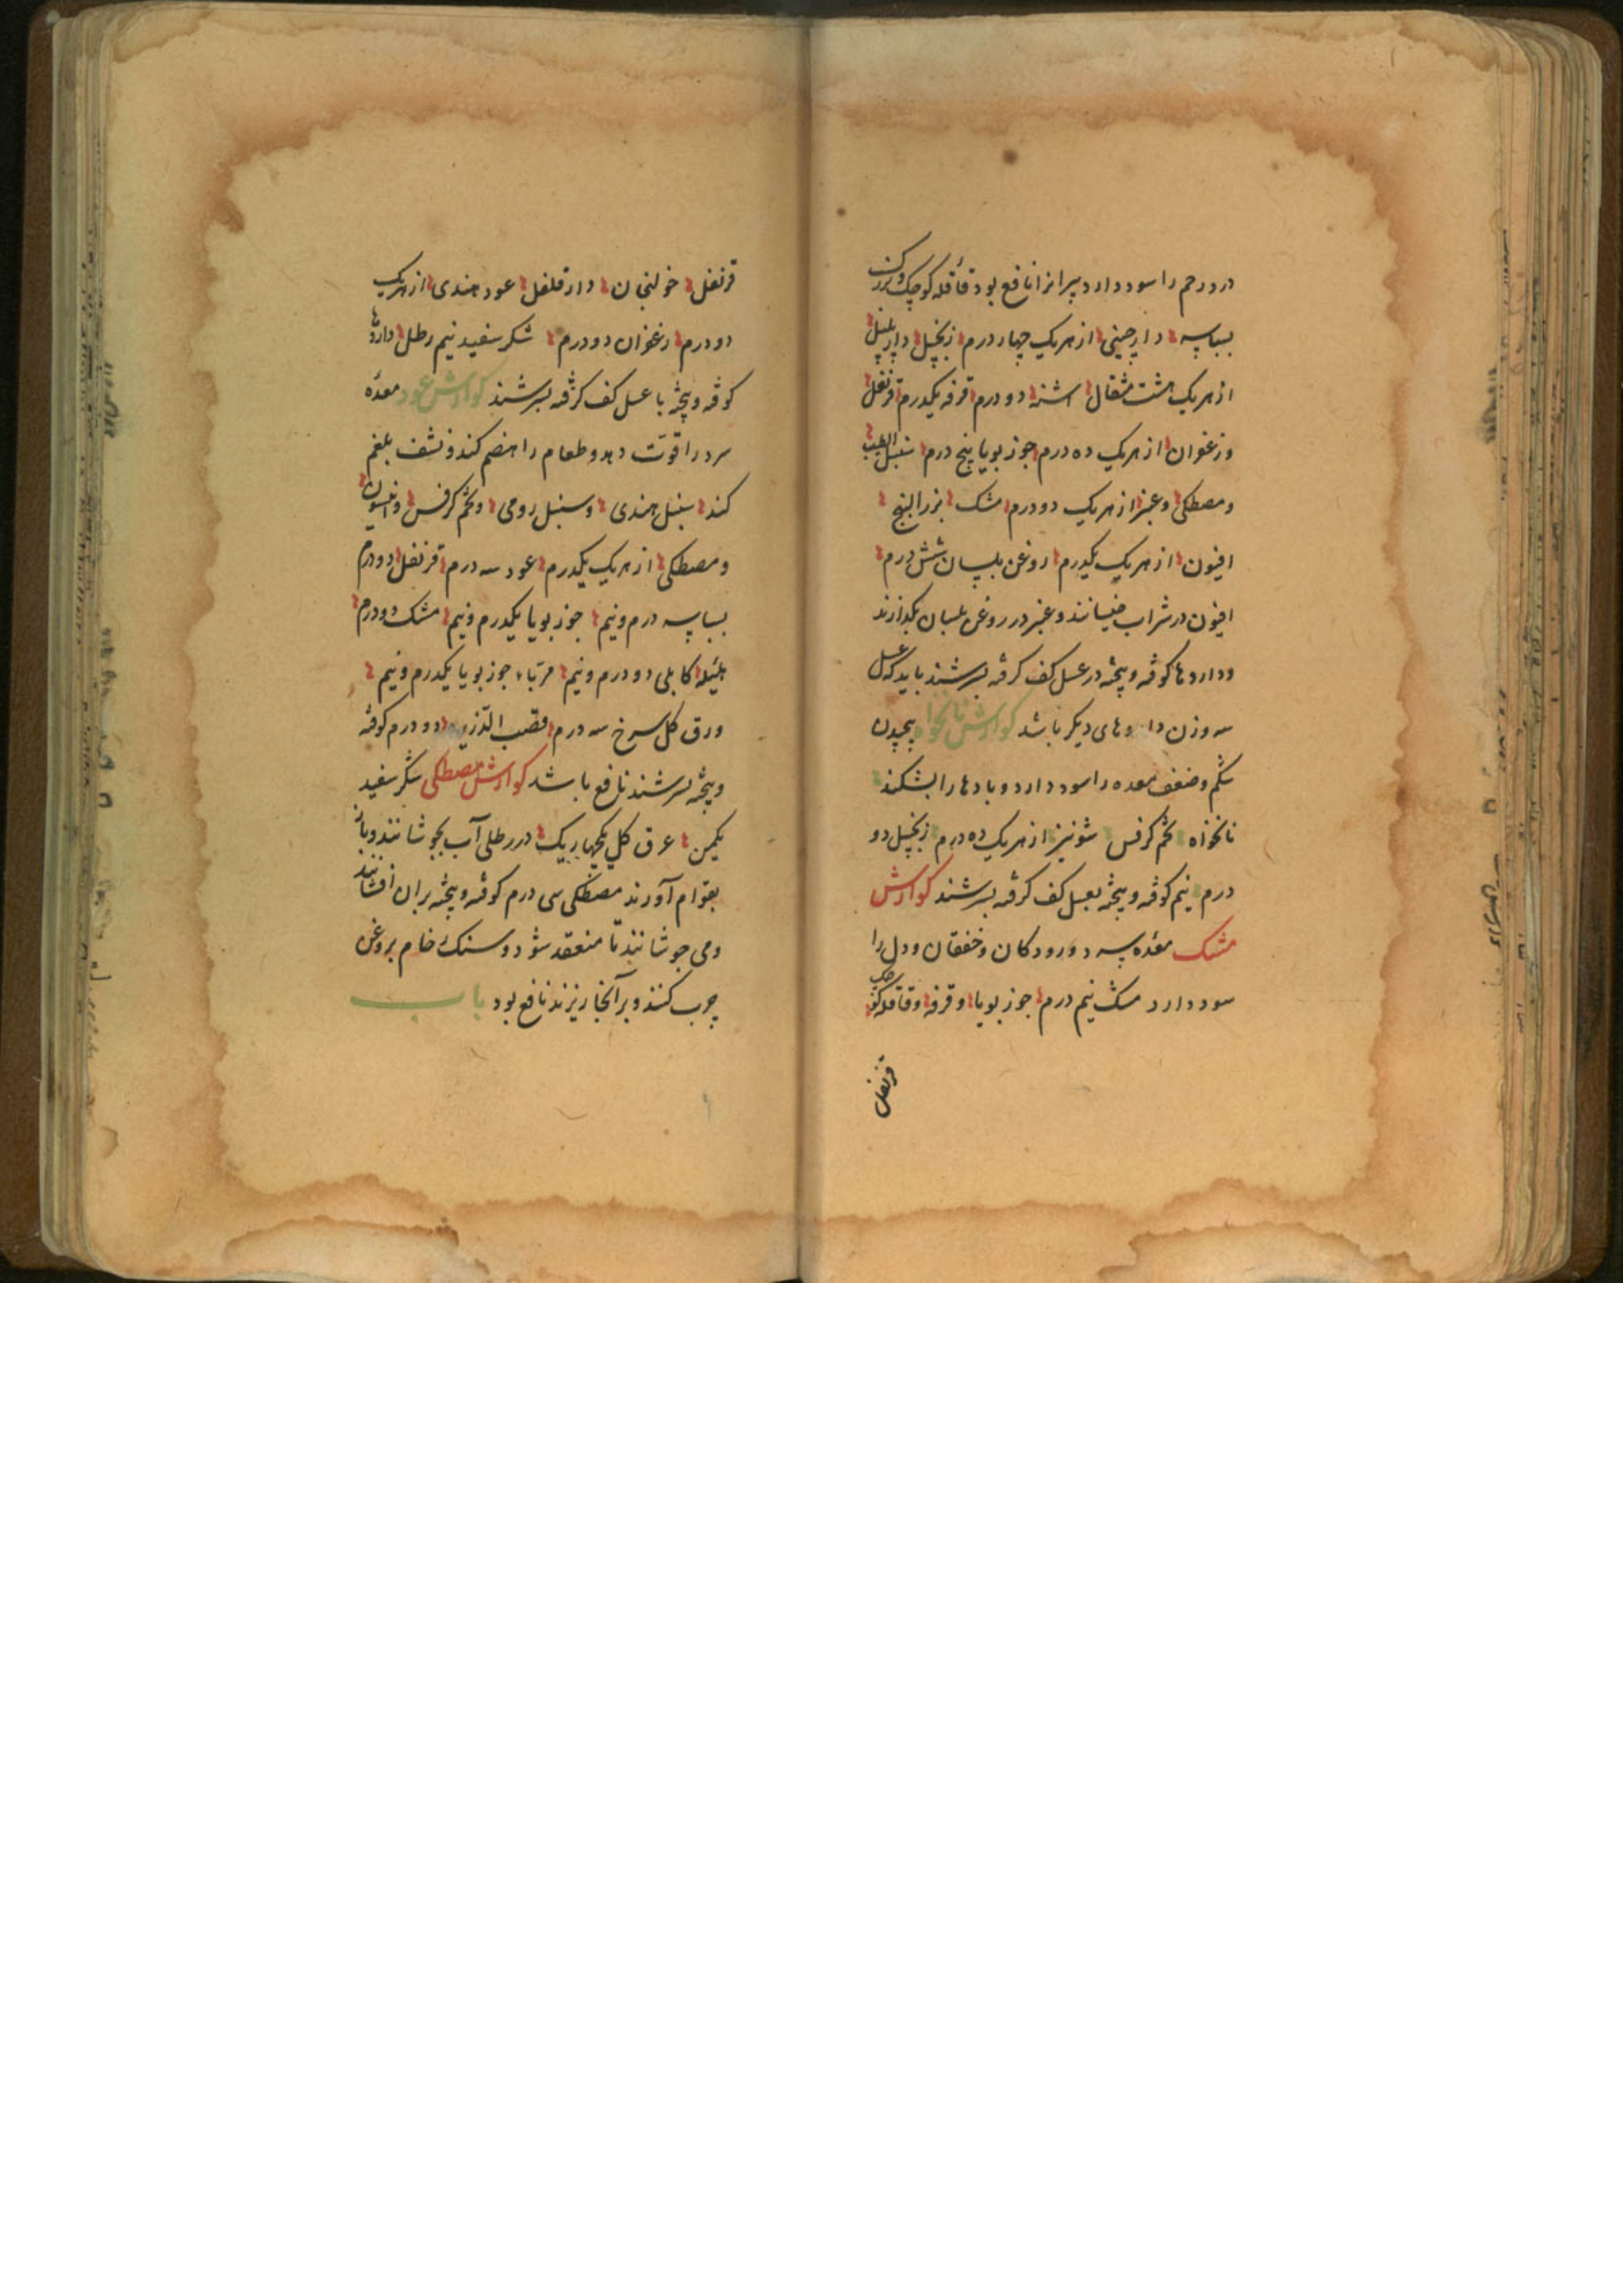 درد رحم را سود دارد پیرانرا نافع بود قاقله کوچک و بزرک
بسباسه دارچینی از هریک چهار درم زنجبیل دارپلپل
از هریک هشت مثقال اشنه دو درم قرفه یکدرم قرنفل
و زعفران از هریک ده درم جوز بویا پنج درم سنبل الطیب
و مصطکی و عنبر از هریک دو درم مشک بزر البنج
افیون از هریک یکدرم روغن بلسان شش درم
افیون در شراب خیسانند و عنبر در روغن بلسان بکدازند
و داروها کوفته و پیخته در عسل کف کرفته بسرشند باید که عسل
سه وزن داروهای دیکر باشد کوارش نانخواه پیچیدن
شکم و ضعف معده را سود دارد و بادها را بشکند
نانخواه تخم کرفس شونیز از هریک ده درم زنجبیل دو
درم نیم کوفته و پیخته بعسل کف کرفته بسرشند کوارش
مشک معده سرد و رودکان و خفقان و دل را
سود دارد مشک نیم درم جوز بویا و قرفه و قاقله کوچک
قرنفل
قرنفل خولنجان دارفلفل عود هندی از هریک
دو درم زعفران دو درم شکر سفید نیم رطل داروها
کوفته و پیخته با عسل کف کرفته بسرشند کوارش عود معده
سرد را قوّت دهد و طعام را هضم کند و نشف بلغم
کند سنبل هندی و سنبل رومی و تخم کرفس و انیسون
و مصطکی از هریک یکدرم عود سه درم قرنفل دو درم
بسباسه درم و نیم جوز بویا یکدرم و نیم مشک دو درم
هلیله کابلی دو درم و نیم مرباء جوز بویا یکدرم و نیم
ورق کل سرخ سه درم قصب الذریره دو درم کوفته
و پیخته بسرشند نافع باشد کوارش مصطکی شکر سفید
یکمن عرق کل یکچهاریک در رطلی آب بجوشانند و باز
بقوام آورند مصطکی سی درم کوفته و پیخته بران افشانند
و می جوشانند تا منعقد شود و سنک خام بروغن
چرب کنند و بر آنجا ریزند نافع بود باب